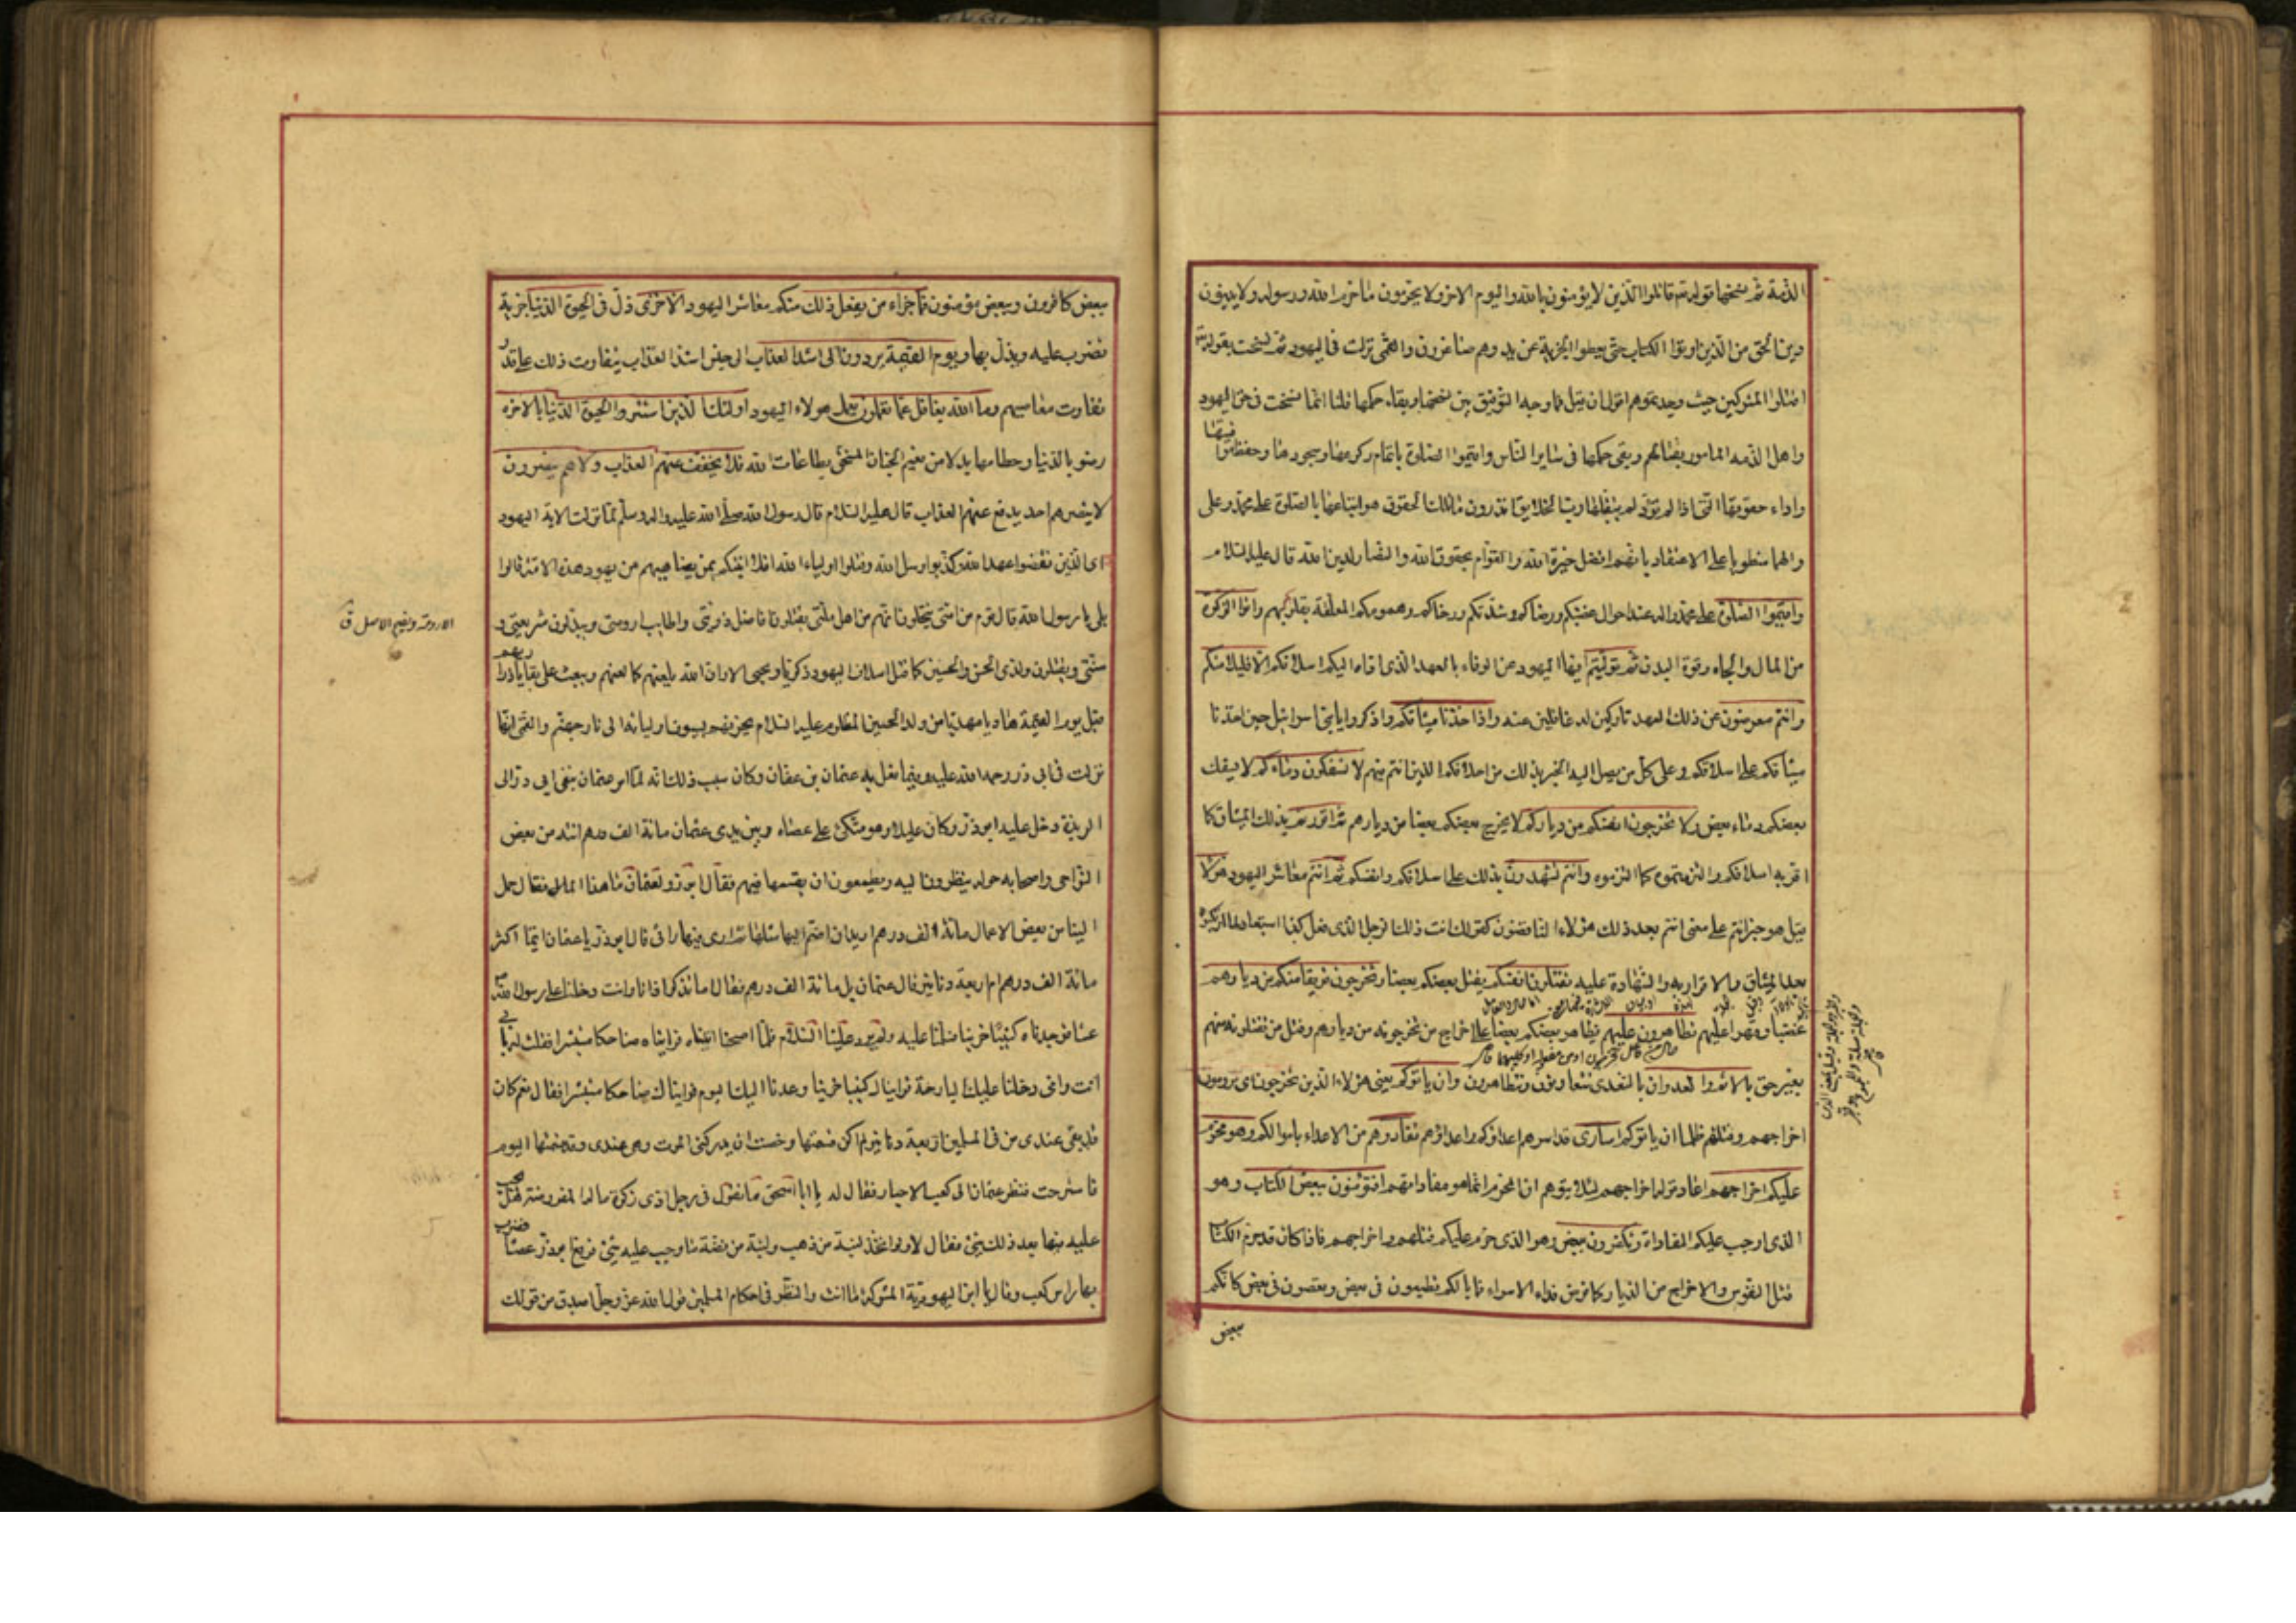 الذمة ثم نسختها قوله تع قاتلوا الذين لا يؤمنون بالله واليوم الاخر ولا يحرمون ما حرم الله ورسوله ولا يدينون
دين الحق من الذين اوتوا الكتاب حتى يعطوا الجزية عن يد وهم صاغرون والقمى نزلت في اليهود ثم نسخت بقوله تع
اقتلوا المشركين حيث وجدتموهم اقول ان قيل فما وجه التوفيق بين نسخها وبقاء حكمها قلنا انما نسخت في حق اليهود
واهل الذمه المامور بقتالهم وبقى حكمها في ساير الناس واقيموا الصلوة باتمام ركوعها وسجودها وحفظ مواقيتها
واداء حقوقها التي اذا لم تؤد لم يتقبلها رب الخلايق اتدرون ما تلك الحقوق هو اتباعها بالصلوة على محمد وعلى
والهما منطويا على الاعتقاد بانهم افضل خيرة الله والقوام بحقوق الله والنصار لدين الله قال عليه السلام
واقيموا الصلوة على محمد واله عند احوال غضبكم ورضاكم وشدتكم ورخاكم وهمومكم المعلقة بقلوبكم واتوا الزكوة
من المال والجاه وقوة البدن ثم توليتم ايها اليهود عن الوفاء بالعهد الذي اداه اليكم اسلافكم الا قليلا منكم
وانتم معرضون عن ذلك العهد تاركين له غافلين عنه واذ اخذنا ميثاقكم واذكروا يا بني اسرائيل حين اخذنا
ميثاقكم على اسلافكم وعلى كل من يصل اليه الخبر بذلك من اخلافكم الذين انتم منهم لا تسفكون دماءكم لا يسفك
بعضكم دماء بعض ولا تخرجون انفسكم من دياركم لا يخرج بعضكم بعضا من ديارهم ثم اقررتم بذلك الميثاق كما
اقر به اسلافكم والتزمتموه كما التزموه وانتم تشهدون بذلك على اسلافكم وانفسكم ثم انتم معاشر اليهود هؤلاء
قيل هو خبر انتم على معنى انتم بعد ذلك هؤلاء الناقضون كقولك انت ذلك الرجل الذي فعل كذا استبعادا لما ارتكبوه
بعد الميثاق والاقرار به والشهادة عليه تقتلون انفسكم يقتل بعضكم بعضا وتخرجون فريقا منكم من ديارهم
غضبا وقهرا عليهم تظاهرون عليهم تظاهر بعضكم بعضا على اخراج من تخرجونه من ديارهم وقتل من تقتلونه منهم
بغير حق بالاثم والعدوان بالتعدى تتعاونون وتتظاهرون وان ياتوكم يعني هؤلاء الذين تخرجون اى ترومون
اخراجهم وقتلهم ظلما ان ياتوكم اسارى قد اسرهم اعداؤكم واعداؤهم تفادوهم من الاعداء باموالكم وهو محرم
عليكم اخراجهم اعاد قوله اخراجهم لئلا يتوهم ان المحرم انما هو مفاداتهم افتؤمنون ببعض الكتاب وهو
الذي اوجب عليكم المفاداة وتكفرون ببعض وهو الذي حرم عليكم قتلهم واخراجهم فاذا كان قد حرم الكتاب
قتل النفوس والاخراج من الديار كما فرض فداء الاسراء فما بالكم تطيعون في بعض وتعصون في بعض كانكم
بعض
ببعض كافرون وببعض مؤمنون فما جزاء من يفعل ذلك منكم معاشر اليهود الا خزى ذل في الحيوة الدنيا جزية
تضرب عليه ويذل بها ويوم القيمة يردون الى اشد العذاب الى جنس اشد العذاب يتفاوت ذلك على قدر
تفاوت معاصيهم وما الله بغافل عما تعملون يعمل هؤلاء اليهود اولئك الذين اشتروا الحيوة الدنيا بالاخرة
رضوا بالدنيا وحطامها بدلا من نعيم الجنان المستحق بطاعات الله فلا يخفف عنهم العذاب ولا هم ينصرون
لا ينصرهم احد يدفع عنهم العذاب قال عليه السلام قال رسول الله صلى الله عليه واله وسلم لما نزلت الاية اليهود
اى الذين نقضوا عهد الله وكذبوا رسل الله وقتلوا اولياء الله افلا انبئكم بمن يضاهيهم من يهود هذه الامة قالوا
بلى يا رسول الله قال قوم من امتى ينتحلون انهم من اهل ملتى يقتلون افاضل ذريتى واطايب ارومتى ويبدلون شريعتى و
سنتى ويقتلون ولدى الحسن والحسين كما قتل اسلاف اليهود زكريا ويحيى الا وان الله يلعنهم كما لعنهم ويبعث على بقايا ذراريهم
قبل يوم القيمة هاديا مهديا من ولد الحسين المظلوم عليه السلام يحرفهم بسيوف اوليائه الى نار جهنم والقمى انها
نزلت في ابي ذر رحمه الله عليه وفيما فعل به عثمان بن عفان وكان سبب ذلك انه لما امر عثمان بنفى ابي ذر الى
الربذة دخل عليه ابوذر وكان عليلا وهو متكئ على عصاه وبين يدى عثمان مائة الف درهم اتته من بعض
النواحى واصحابه حوله ينظرون اليه ويطمعون ان يقسمها فيهم فقال ابوذر لعثمان ما هذا المال فقال حمل
الينا من بعض الاعمال مائة الف درهم اريد ان اضم اليها مثلها ثم ارى فيها رائى قال ابوذر يا عثمان ايما اكثر
مائة الف درهم ام اربعة دنانير قال عثمان بل مائة الف درهم فقال اما تذكر اذ انا وانت دخلنا على رسول الله ص
عشاء فوجدناه كئيبا حزينا فسلمنا عليه ولم يرد علينا السلام فلما اصبحنا اتيناه فرايناه ضاحكا مستبشرا فقلت له بابى
انت وامى دخلنا عليك البارحة فرايناك كئيبا حزينا وعدنا اليك اليوم فرايناك ضاحكا مستبشرا فقال نعم كان
قد بقى عندى من فئ المسلمين اربعة دنانير لم اكن قسمتها وخفت ان يدركنى الموت وهى عندى وقد قسمتها اليوم
فاسترحت فنظر عثمان الى كعب الاحبار فقال له يا ابا اسحق ما تقول في رجل ادى زكوة ماله المفروضة هل يجب
عليه فيها بعد ذلك شئ فقال لا ولو اتخذ لبنة من ذهب ولبنة من فضة ما وجب عليه شئ فرفع ابوذر عصاه فضرب
بها راس كعب وقال يا ابن اليهودية المشركة ما انت والنظر في احكام المسلمين قول الله عز وجل اصدق من قولك
الارومة وبضم الاصل ق